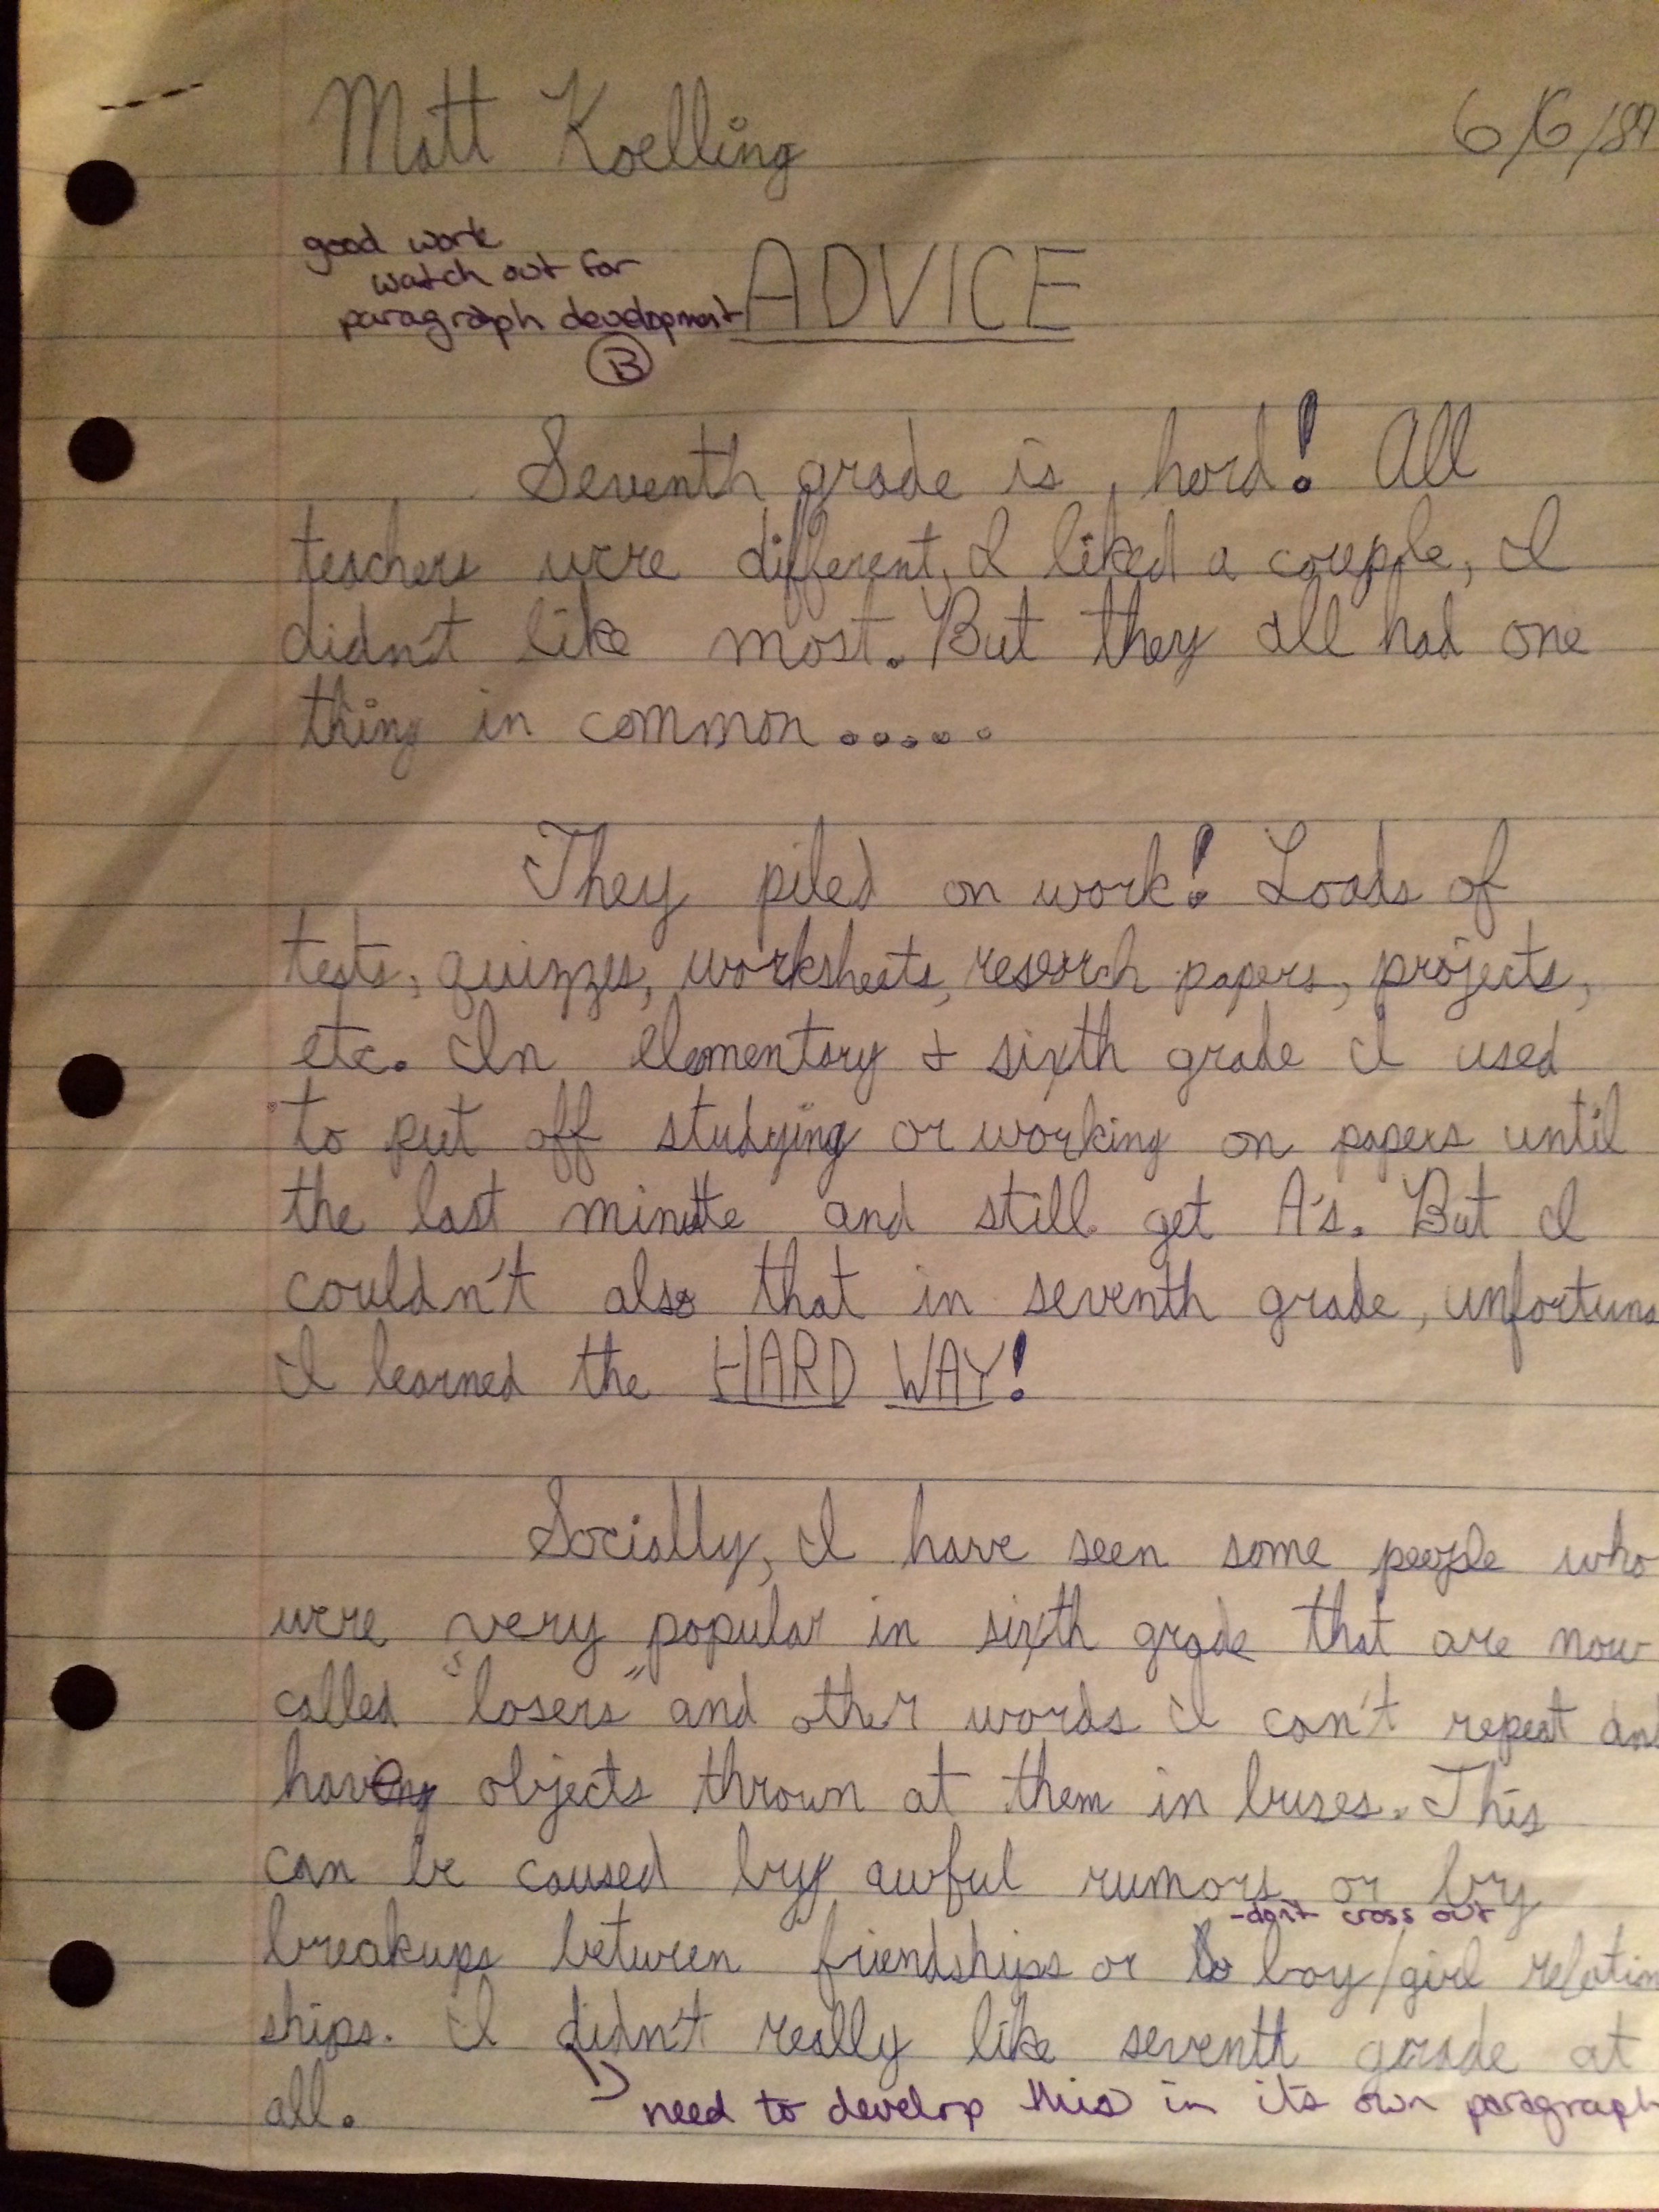 Matt Koelling
6/6/89
good work
watch out for
paragraph development
B
ADVICE
Seventh grade is hard! All
teachers were different, I liked a couple, I
didn't like most. But they all had one
thing in common.....
They piled on work! Loads of
tests, quizzes, worksheets, reserch papers, projects,
etc. In elementary & sixth grade I used
to put off studying or working on papers until
the last minute and still get A's. But I
couldn't also that in seventh grade, unfortuna
I learned the HARD WAY!
Socially, I have seen some people who
were very popular in sixth grade that are now
called "losers" and other words I can't repeat and
have objects thrown at them in buses. This
can be caused by awful rumors or by
-don't cross out
breakups between friendships or boy/girl relation
ships. I didn't really like seventh grade at
all.
need to develop this in its own paragraph